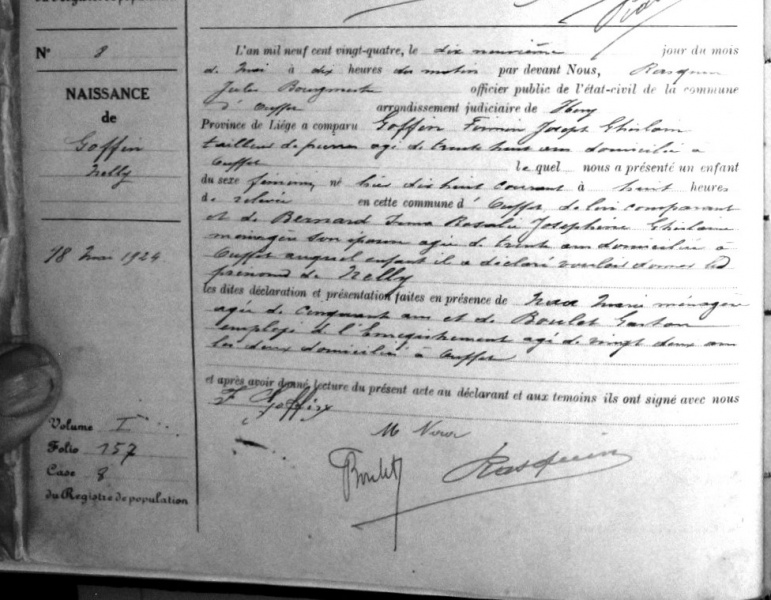 N° 8
NAISSANCE
de
Goffin
Nelly
18 mai 1924
Volume I
Folio 157
Case 8
du Registre de population
L'an mil neuf cent vingt-quatre, le dix neuvième jour du mois
de mai à dix heures du matin par devant Nous, Rasquin
Jules officier public de l'état-civil de la commune
d'Ouffet arrondissement judiciaire de Huy
Province de Liége a comparu Goffin Firmin Joseph Ghislain
tailleur de pierres agé de trente ans domicilié à
Ouffet le quel nous a présenté un enfant
du sexe féminin, né hier dix huit courant à huit heures
de relevée en cette commune d'Ouffet de lui comparant
et de Bernard Irma Rosalie Joséphine Ghislaine
ménagère son épouse agée de trente ans domiciliée à
Ouffet auquel enfant il a déclaré vouloir donner le
prénom de Nelly
les dites déclaration et présentation faites en présence de Marie ménagère
agée de cinquante ans et de Boulet Gaston
employé de l'Enregistrement agé de vingt deux ans
les deux domiciliés à Ouffet
et après avoir donné lecture du présent acte au déclarant et aux temoins ils ont signé avec nous
F Goffin
M
Boulet
Rasquin